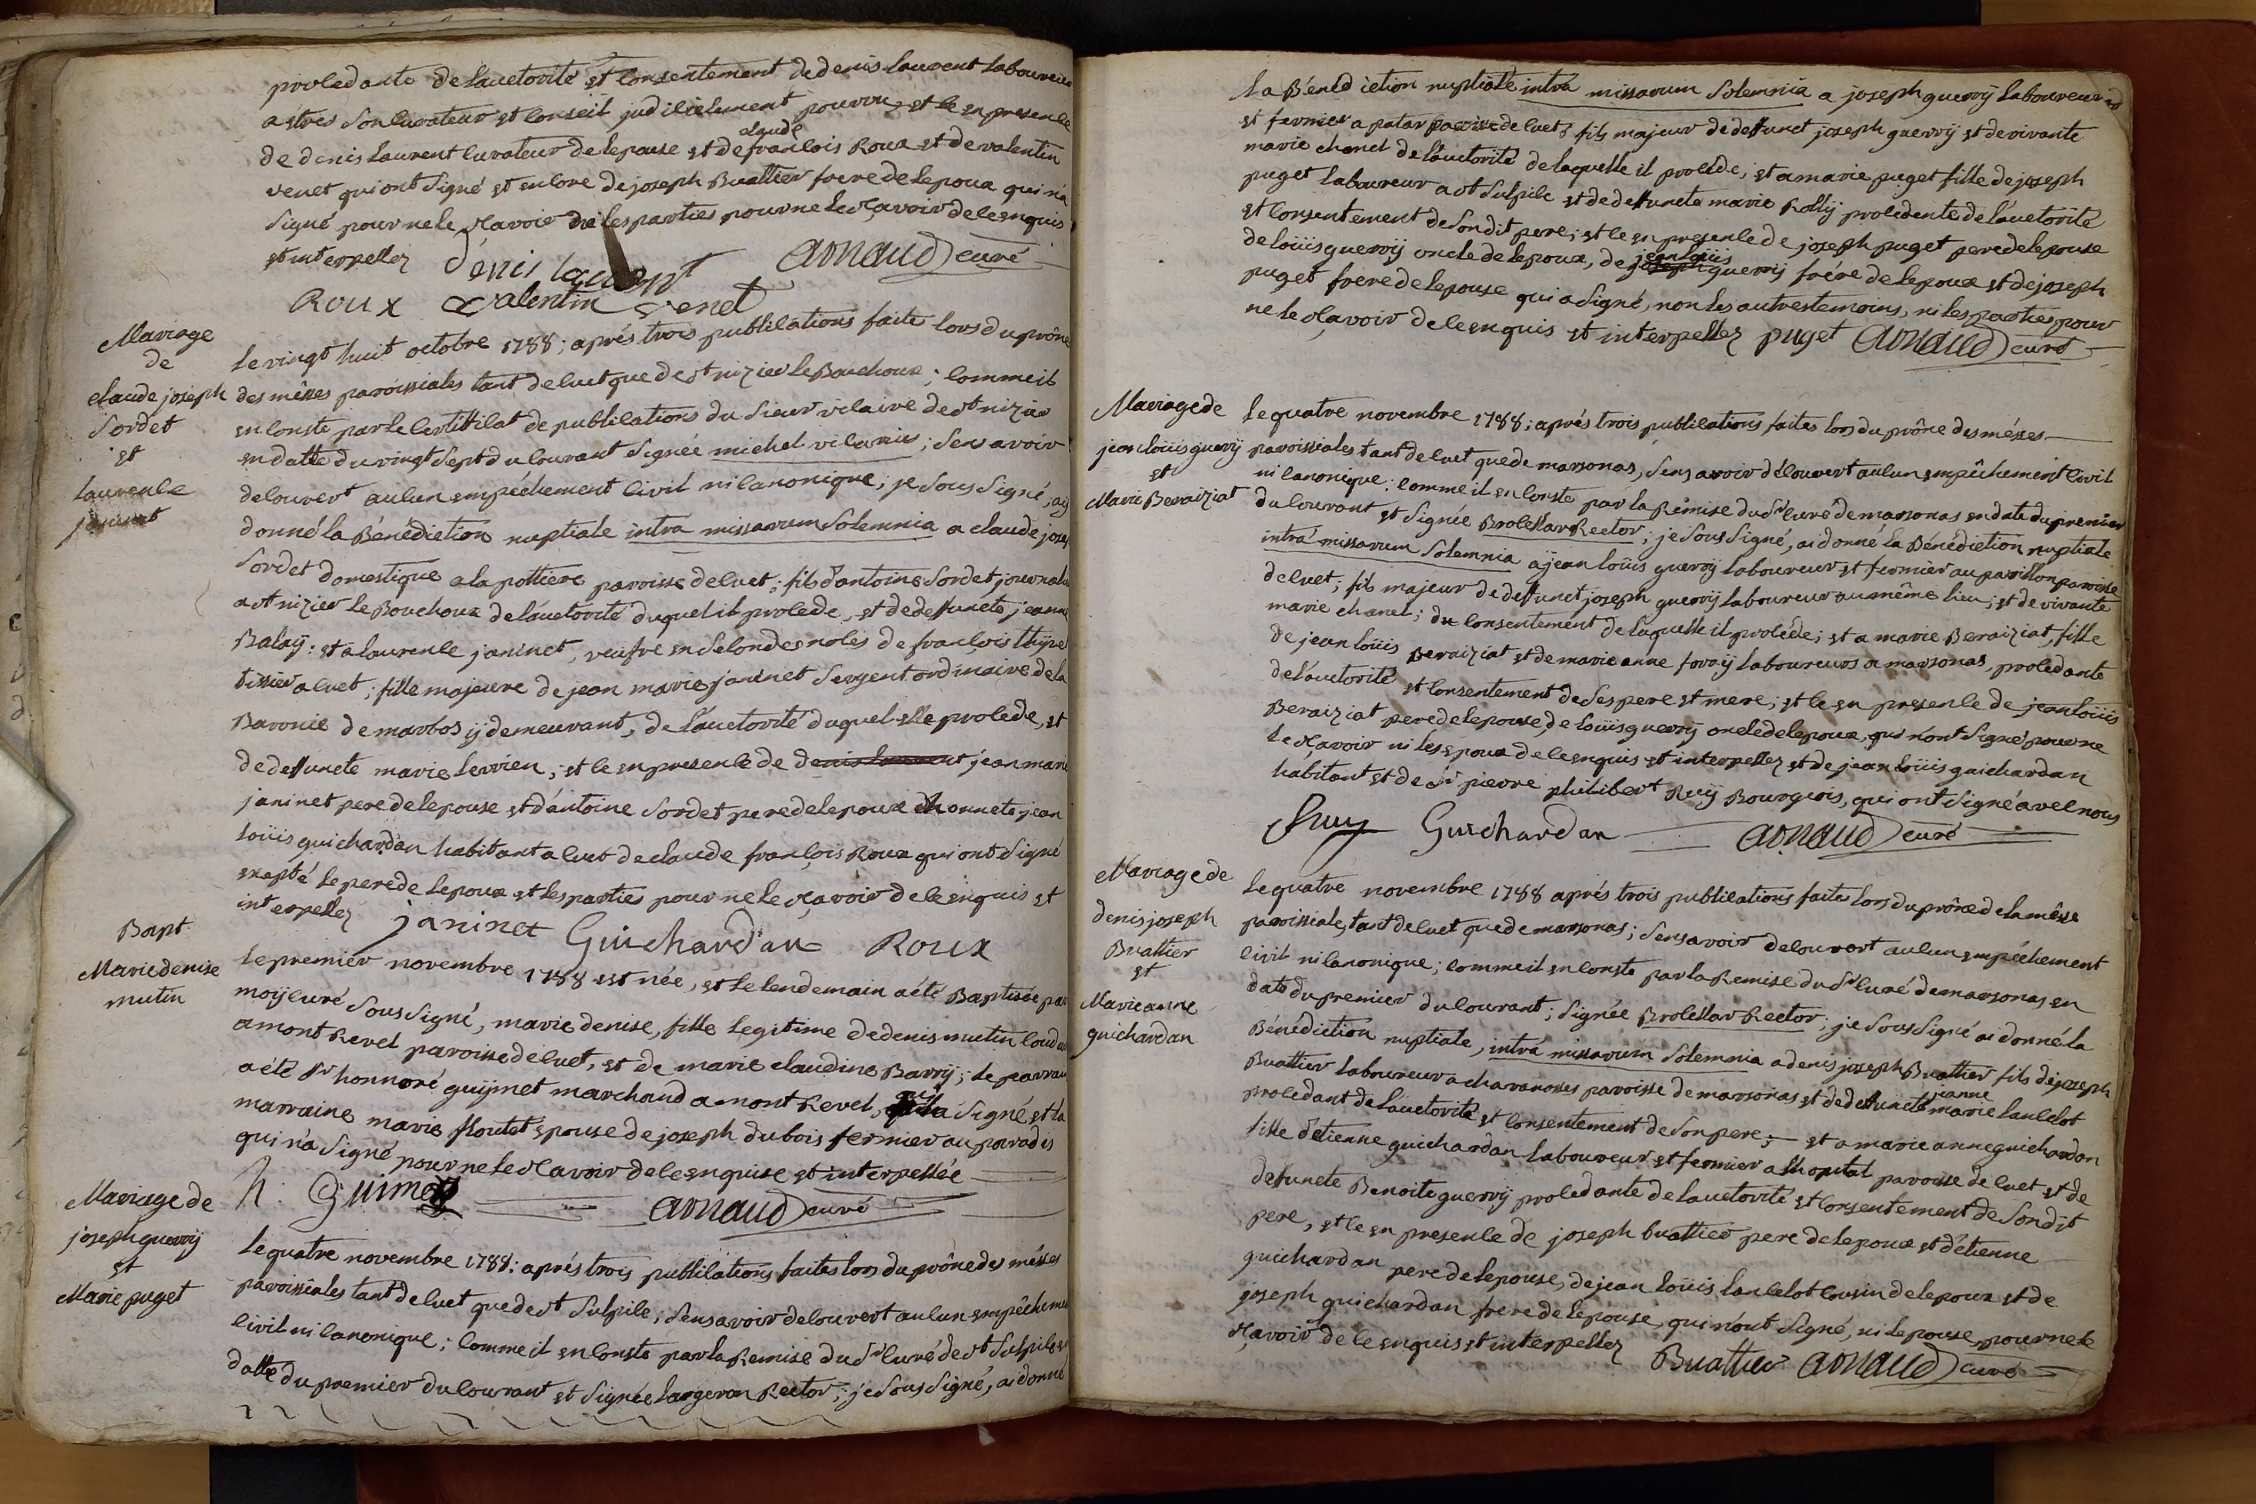 procedante de l'auctorité et consentement de denis laurent laboureur
a êtres son curateur et conseil judiciélement pourvu, et ce en presence
de denis laurent curateur de l'epouse et de claude françois Roux et de valentin
venet qui ont signé et encore de joseph Buattier frere de l'epoux qui n'a
signé pour ne le sçavoir les parties pour ne le sçavoir de ce enquis
et interpellez denis laurent arnaud curé
Roux valentin venet
Mariage
de
claude joseph
sordet
et
laurence
janinet
le vingt huit octobre 1788; aprés trois publications faites lors du prône
des mêsses paroissiales tant de cuet que de st nizier le Bouchoux; comme il
en conste par le certificat de publications du sieur vicaire de st nizier
en datte du vingt sept du courant signée michel vicarius; sens avoir
decouvert aucun empéchement civil ni canonique; je sous signé, ay
donné la Bénédiction nuptiale intra missarum solemnia a claude josep
sordet domestique a la pottiere paroisse de cuet; fils d'antoine sordet journalie
a st nizier le Bouchoux de l'áuctorité duquel il procede, et de deffuncte jeanne
Balaÿ: et a laurence janinet, veufve en secondes noces de françois
tissier a cuet; fille majeure de jean marie janinet sergent ordinaire de la
Baronie de marbos ÿ demeurant, de l'áuctorité duquel elle procede, et
de deffuncte marie servien; et ce en presence de denis laurent jean marie
janinet pere de l'epouse et d'ántoine sordet pere de l'epoux d'honnete jean
loüis guichardan habitant a cuet de claude françois Roux qui ont signé
excepté le pere de l'epoux et les parties pour ne le sçavoir de ce enquis et
interpellez janinet Guichardan Roux
Bapt
Marie denise
mutin
le premier novembre 1788 est née, et le lendemain a été Baptisée par
moÿ curé sous signé, marie denise, fille legitime de denis mutin
a mont Revel paroisse de cuet, et de marie claudine Barrÿ; le parrain
a été sr honnoré guÿmet marchand a mont Revel, qui a signé et la
marraine marie floutet epouse de joseph dubois fermier au paradis
qui n'a signé pour ne le sçavoir de ce enquise et interpellée
h. Guimet arnaud curé
Mariage de
joseph guerrÿ
et
Marie puget
le quatre novembre 1788: aprés trois publications faites lors du prône des mêsses
paroissiales tant de cuet que de st sulpice; sens avoir decouvert aucun empêchemen
civil ni canonique; comme il en conste par la Remise du sr curé de st sulpice en
datte du premier du courant et signée Rector; je sous signé, ai donné
la Bénédiction nuptiale intrá missarum solemnia a joseph guerrÿ laboureur
et fermier a patar paroisse de cuet, fils majeur de deffunct joseph guerrÿ et de vivante
marie chanel de l'áuctorité de laquelle il procéde; et a marie puget fille de joseph
puget laboureur a st sulpice et de deffuncte marie Rollÿ procedente de l'áuctorité
et consentement de son dit pere; et ce en presence de joseph puget pere de l'epouse
de loüis guerrÿ oncle de l'epoux, de jean loüis joseph guerrÿ frére de l'epoux et de joseph
puget frere de l'epouse qui a signé, non les autres temoins, ni les parties pour
ne le sçavoir de ce enquis et interpellez puget arnaud curé
Mariage de
jean loüis guerrÿ
et
Marie Beraiziat
le quatre novembre 1788; aprés trois publications faites lors du prône des mésses
paroissiales tant de cuet que de marsonas, sens avoir découvert aucun empêchement civil
ni canonique: comme il en conste par la Rémise du sr curé de marsonas en date du premier
du courant et signée Brolessar Rector; je sous signé, ai donné la Bénédiction nuptiale
intrá missarum solemnia a jean loüis guerrÿ laboureur et fermier au pavillon paroisse
de cuet; fils majeur de deffunct joseph guerrÿ laboureur au même lieu; et de vivante
marie chanel; du consentement de laquelle il procéde; et a marie Beraiziat, fille
de jean loüis Beraiziat et de marie anne forrÿ laboureurs a marsonas, procedante
de l'áuctorité et consentement de ses pere et mere; et ce en presence de jean loüis
Beraiziat pere de l'epouse, de loüis guerrÿ oncle de l'epoux, qui n'ont signé pour ne
le sçavoir ni les epoux de ce enquis et interpellez et de jean loüis guichardan
habitant et de sr pierre philibert Ruÿ Bourgeois, qui ont signé avec nous
Ruy Guichardan arnaud curé
Mariage de
denis joseph
Buattier
et
Marie anne
guichardan
le quatre novembre 1788 aprés trois publications faites lors du prône de la mêsse
paroissiale, tant de cuet que de marsonas; sens avoir decouvert aucun empéchement
civil ni canonique; comme il en conste par la Remise du sr curé de marsonas en
date du premier du courant; signée Brolessar Rector; je sous signé ai donné la
Bénédiction nuptiale, intrá missarum solemnia a denis joseph Buattier fils de joseph
Buattier laboureur a charanosses paroisse de marsonas et de deffuncte jeanne marie lancelot
procedant de l'auctorité et consentement de son pere; et a marie anne guichardan
fille d'etienne guichardan laboureur et fermier a l'hopital paroisse de cuet et de
defuncte Benoite guerrÿ procedante de l'auctorité et consentement de son dit
pere, et ce en presence de joseph buattier pere de l'epoux et d'étienne
guichardan pere de l'epouse, de jean loüis lancelot cousin de l'epoux et de
joseph guichardan frere de l'epouse, qui n'ont signé, ni l'epouse, pour ne le
sçavoir de ce enquis et interpellez Buattier arnaud curé